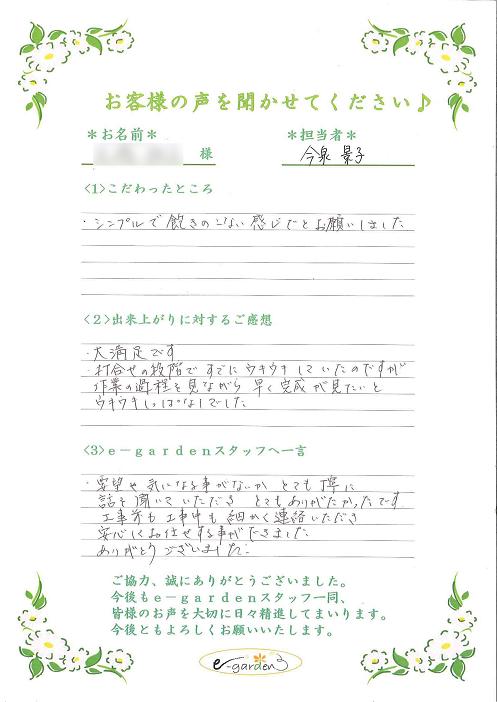 お客様の声を聞かせてください♪
*お名前* *担当者*
様 今泉 景子
<1>こだわったところ
・シンプルで飽きのこない感じだとお願いしました
<2>出来上がりに対するご感想
・大満足です
・打合せの段階ですでにウキウキしていたのですが
作業の過程を見ながら早く完成が見たいと
ウキウキしっぱなしでした
<3>e-gardenスタッフへ一言
・要望や気になる事がないかとても丁寧に
話を聞いていただきとてもありがたかったです
工事前も工事中も細かく連絡いただき
安心しお任せする事ができました
ありがとうございました。
ご協力、誠にありがとうございました。
今後もe-gardenスタッフ一同、
皆様のお声を大切に日々精進してまいります。
今後ともよろしくお願いいたします。
e-garden